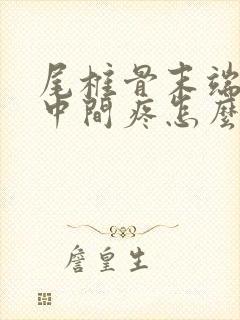 尾椎骨末端
中間疼怎麼
詹皇生